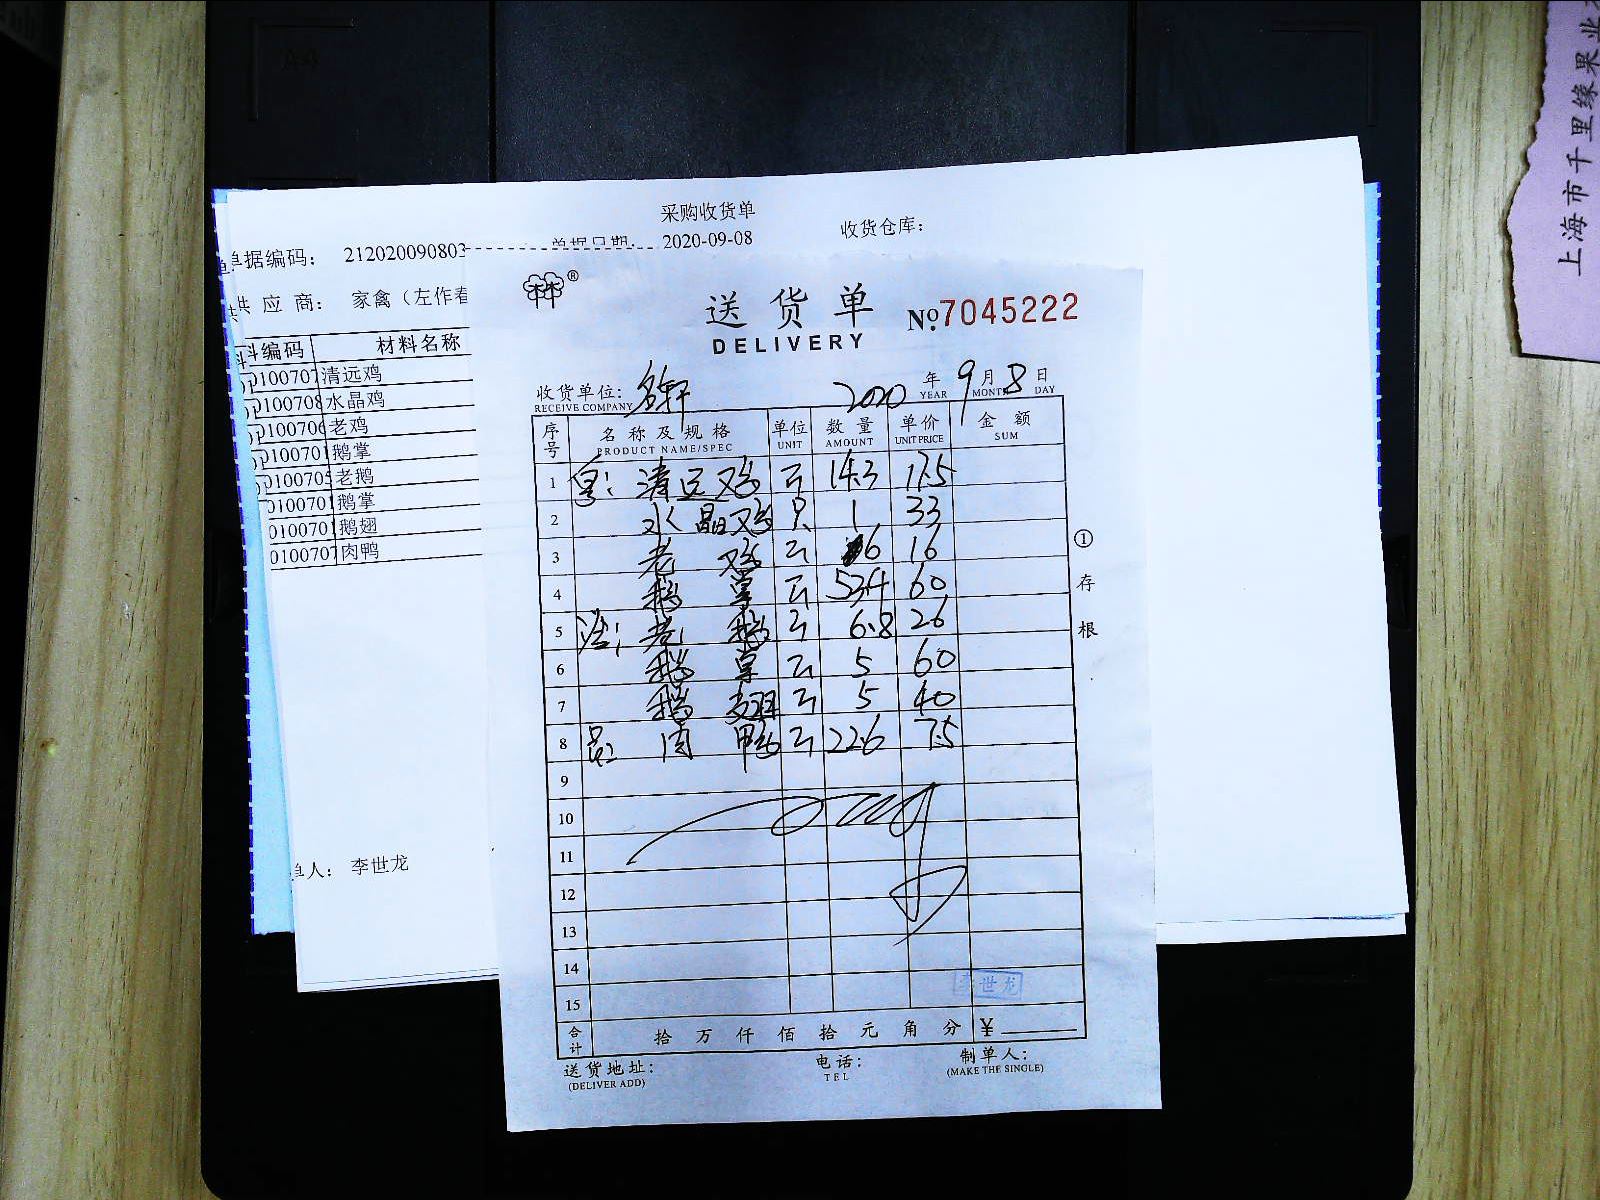 采购收货单
单据编码： 212020090803 单据日期： 2020-09-08 收货仓库：
供 应 商： 家禽（左作春
料编码 材料名称
0100707 清远鸡
0100708 水晶鸡
0100706 老鸡
0100701 鹅掌
0100705 老鹅
0100701 鹅掌
0100701 鹅翅
0100707 肉鸭
单人： 李世龙
上海市千里缘果业
送货单 No.7045222
DELIVERY
收货单位： 2020 年 9 月 8 日
RECEIVE COMPANY YEAR MONTH DAY
序号 名称及规格 单位 数量 单价 金额
PRODUCT NAME/SPEC UNIT AMOUNT UNIT PRICE SUM
1 清远鸡 斤 14.3 17.5
2 水晶鸡 只 1 33
3 老鸡 斤 6 16
4 鹅掌 斤 53.4 60
5 老鹅 斤 6.8 26
6 鹅掌 斤 5 60
7 鹅翅 斤 5 40
8 肉鸭 斤 22.6 7.5
9
10
11
12
13
14
15
李世龙
合计 拾 万 仟 佰 拾 元 角 分 ¥
送货地址： 电话： 制单人：
(DELIVER ADD) TEL (MAKE THE SINGLE)
①存根